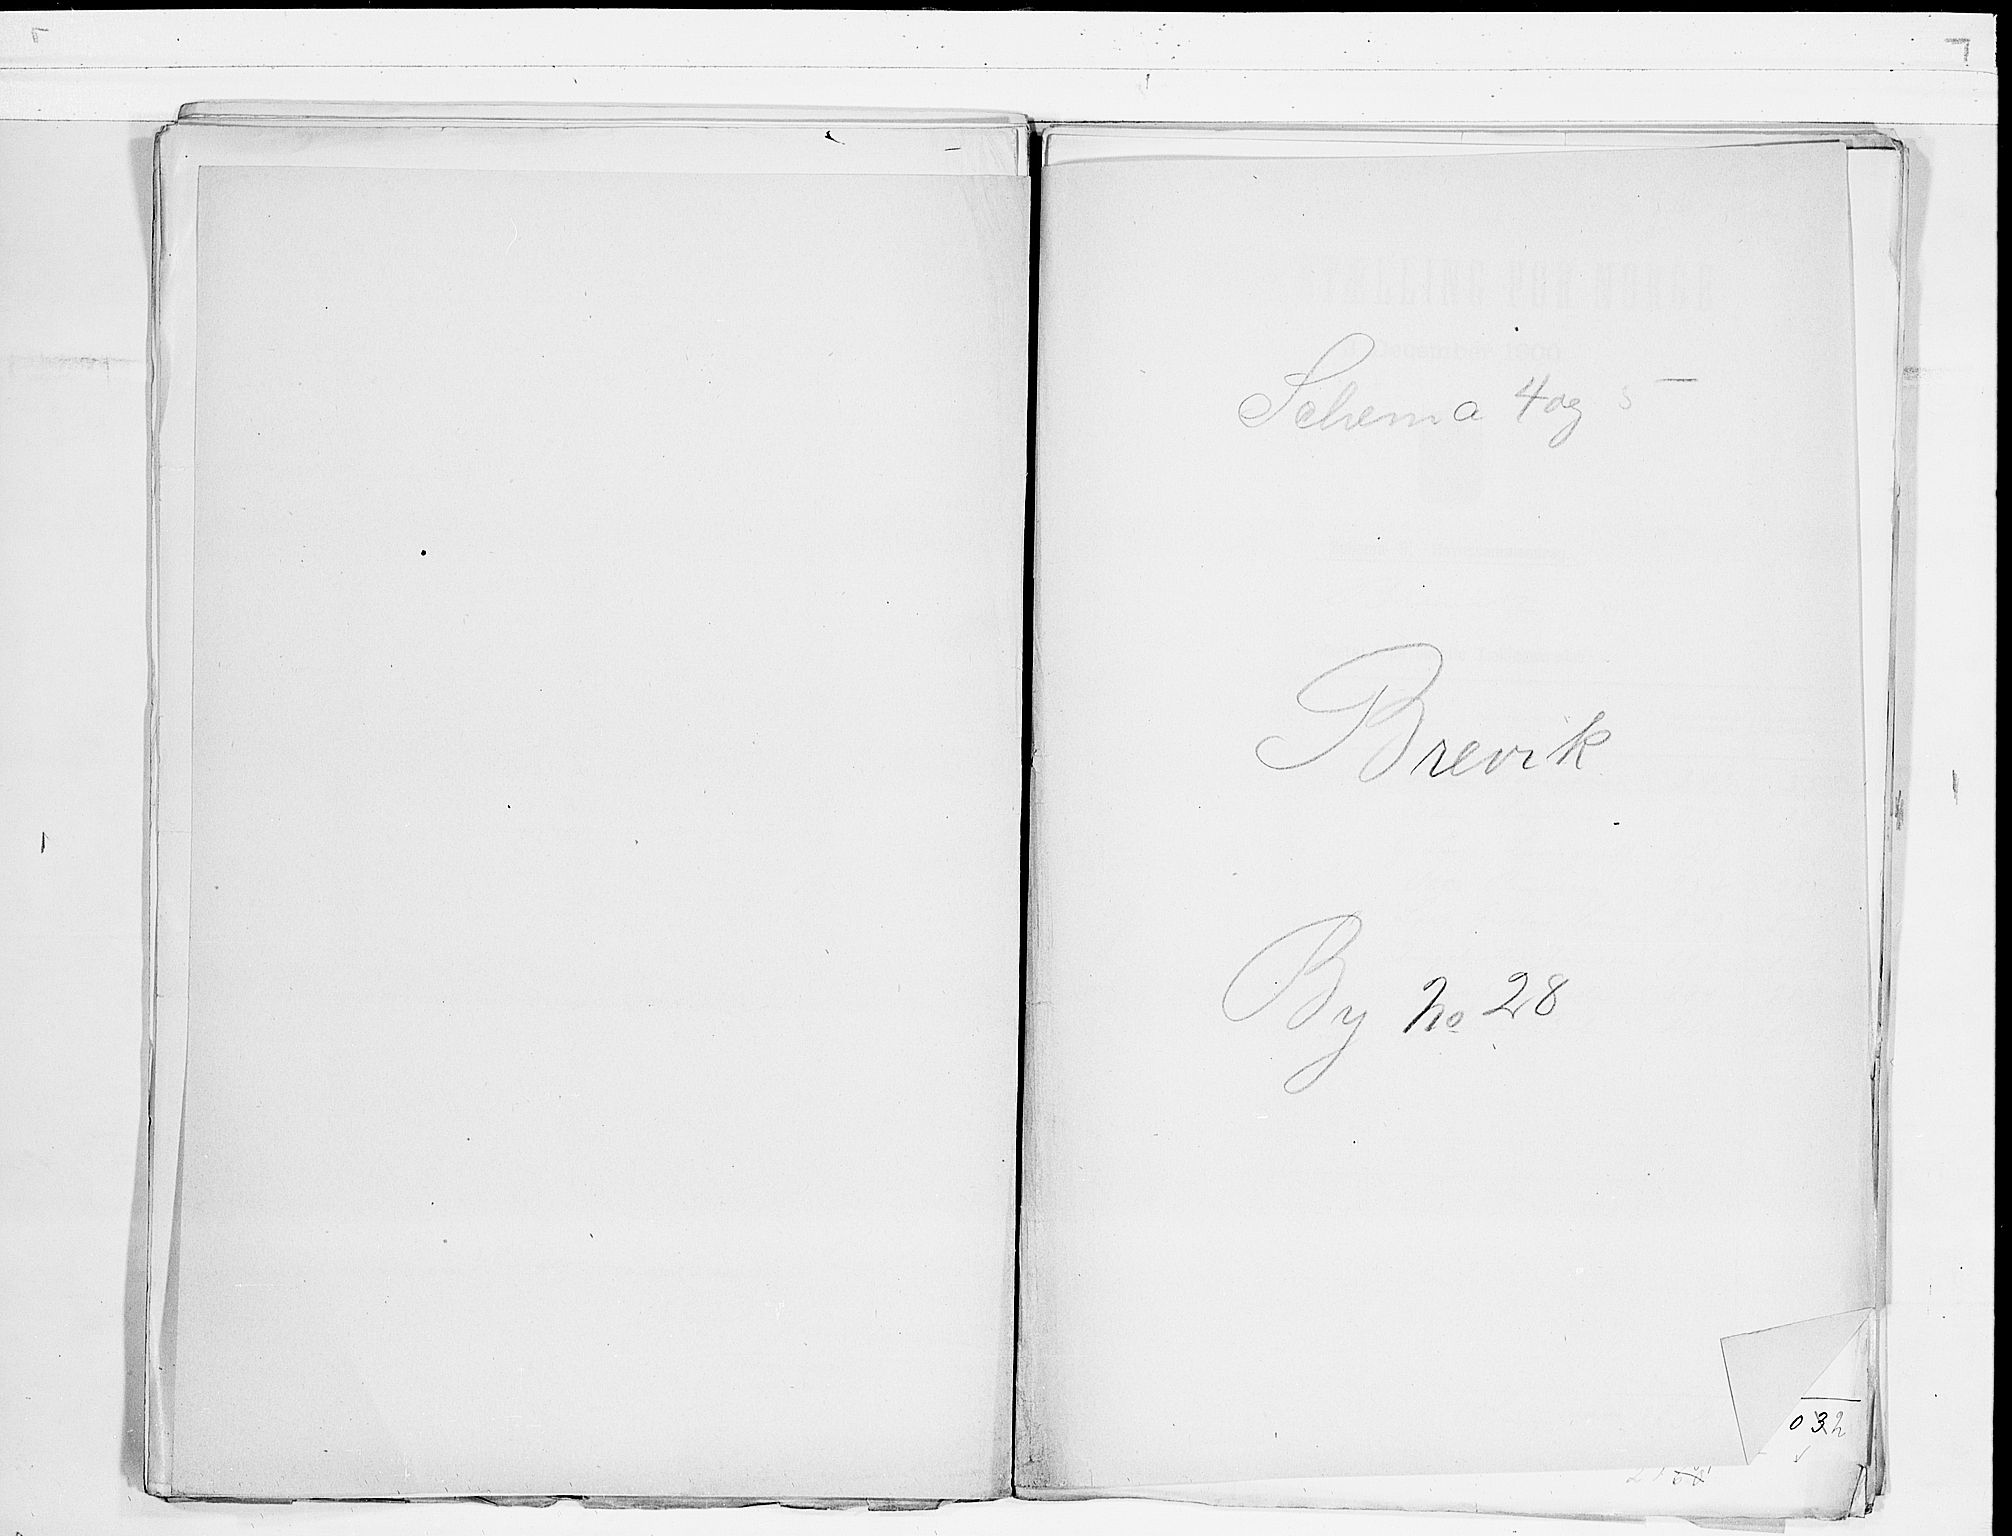 TÆLLING FOR NORGE
December 1900
Schema 4 og 5
Brevik
By No 28
032